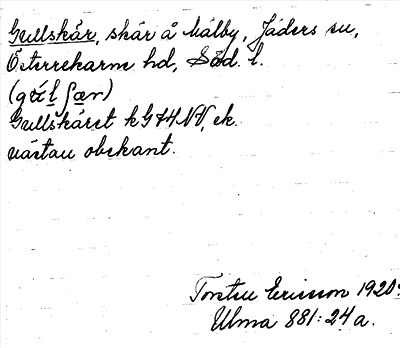 Gullskär, skär å Välby, Jäders sn,
Österrekarne hd, Söd. l.
Gullskäret kG44NV, ek.
nästan obekant.
Torsten Ericsson 1920
Ulma 881:24a.